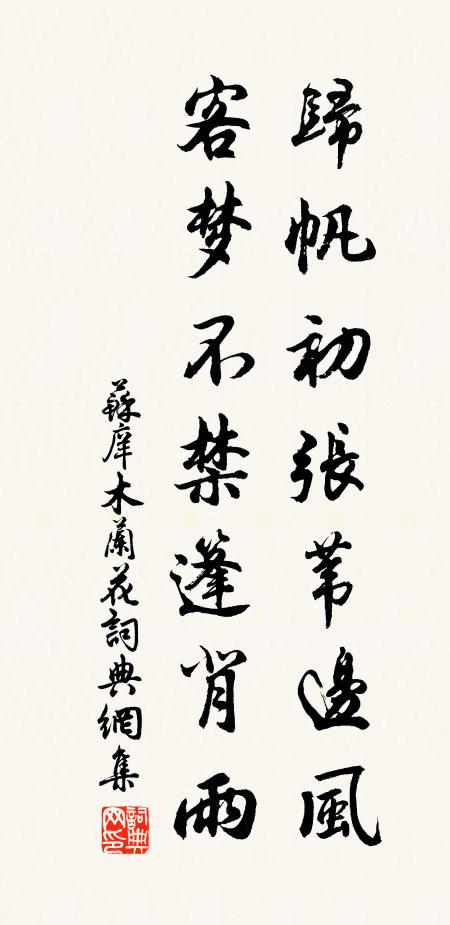 歸帆初張苇邊風
客梦不禁篷背雨
蘇庠木蘭花詞典網集
詞典网印